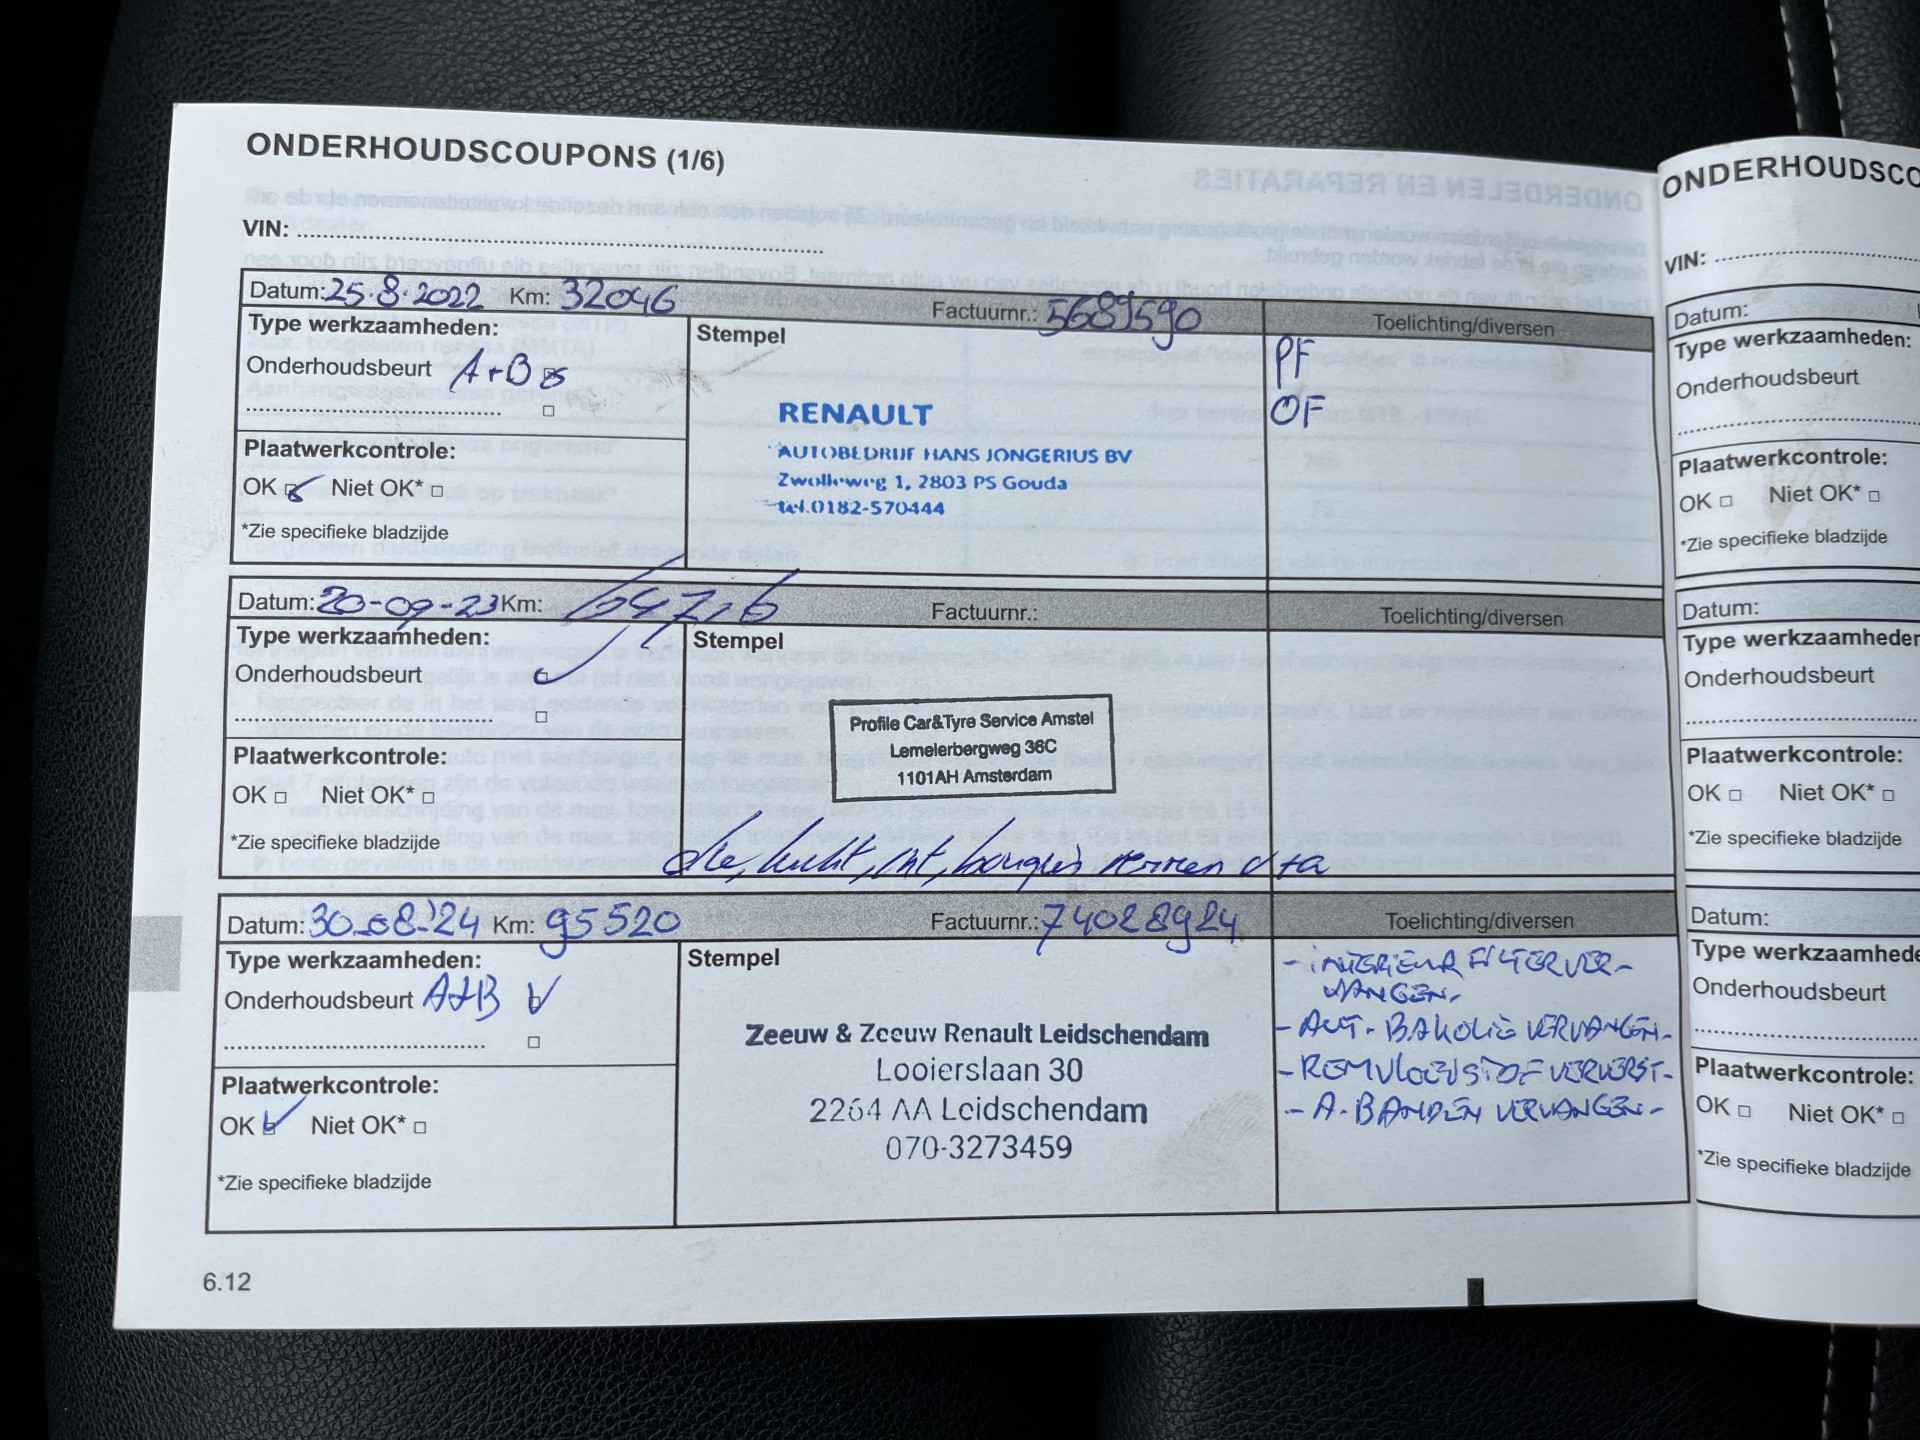 ONDERHOUDSCOUPONS (1/6)
VIN:
Datum: 25.8.2022 Km: 32046 Factuurnr.: 5689590 Toelichting/diversen
Type werkzaamheden:
Onderhoudsbeurt A+B
Stempel
PF
OF
RENAULT
AUTOBEDRIJF HANS JONGERIUS BV
Zwolleweg 1, 2803 PS Gouda
tel.0182-570444
Plaatwerkcontrole:
OK Niet OK*
*Zie specifieke bladzijde
Datum: 20-09-23 Km: Factuurnr.: Toelichting/diversen
Type werkzaamheden:
Onderhoudsbeurt
Stempel
Profile Car&Tyre Service Amstel
Lemelerbergweg 36C
1101AH Amsterdam
Plaatwerkcontrole:
OK Niet OK*
*Zie specifieke bladzijde
olie, lucht, int, bougies remmen
Datum: 30-08-'24 Km: 95520 Factuurnr.: 74028924 Toelichting/diversen
Type werkzaamheden:
Onderhoudsbeurt A+B
Stempel
Zeeuw & Zeeuw Renault Leidschendam
Looierslaan 30
2264 AA Leidschendam
070-3273459
- INTERIEUR FILTER VER-
VANGEN-
- AUT-BAKOLIE VERVANGEN-
- REMVLOEISTOF VERVERST-
- A-BANDEN VERVANGEN-
Plaatwerkcontrole:
OK Niet OK*
*Zie specifieke bladzijde
6.12
ONDERHOUDSCO
VIN:
Datum:
Type werkzaamheden:
Onderhoudsbeurt
Plaatwerkcontrole:
OK Niet OK*
*Zie specifieke bladzijde
Datum:
Type werkzaamheden
Onderhoudsbeurt
Plaatwerkcontrole:
OK Niet OK*
*Zie specifieke bladzijde
Datum:
Type werkzaamhede
Onderhoudsbeurt
Plaatwerkcontrole:
OK Niet OK*
*Zie specifieke bladzijde